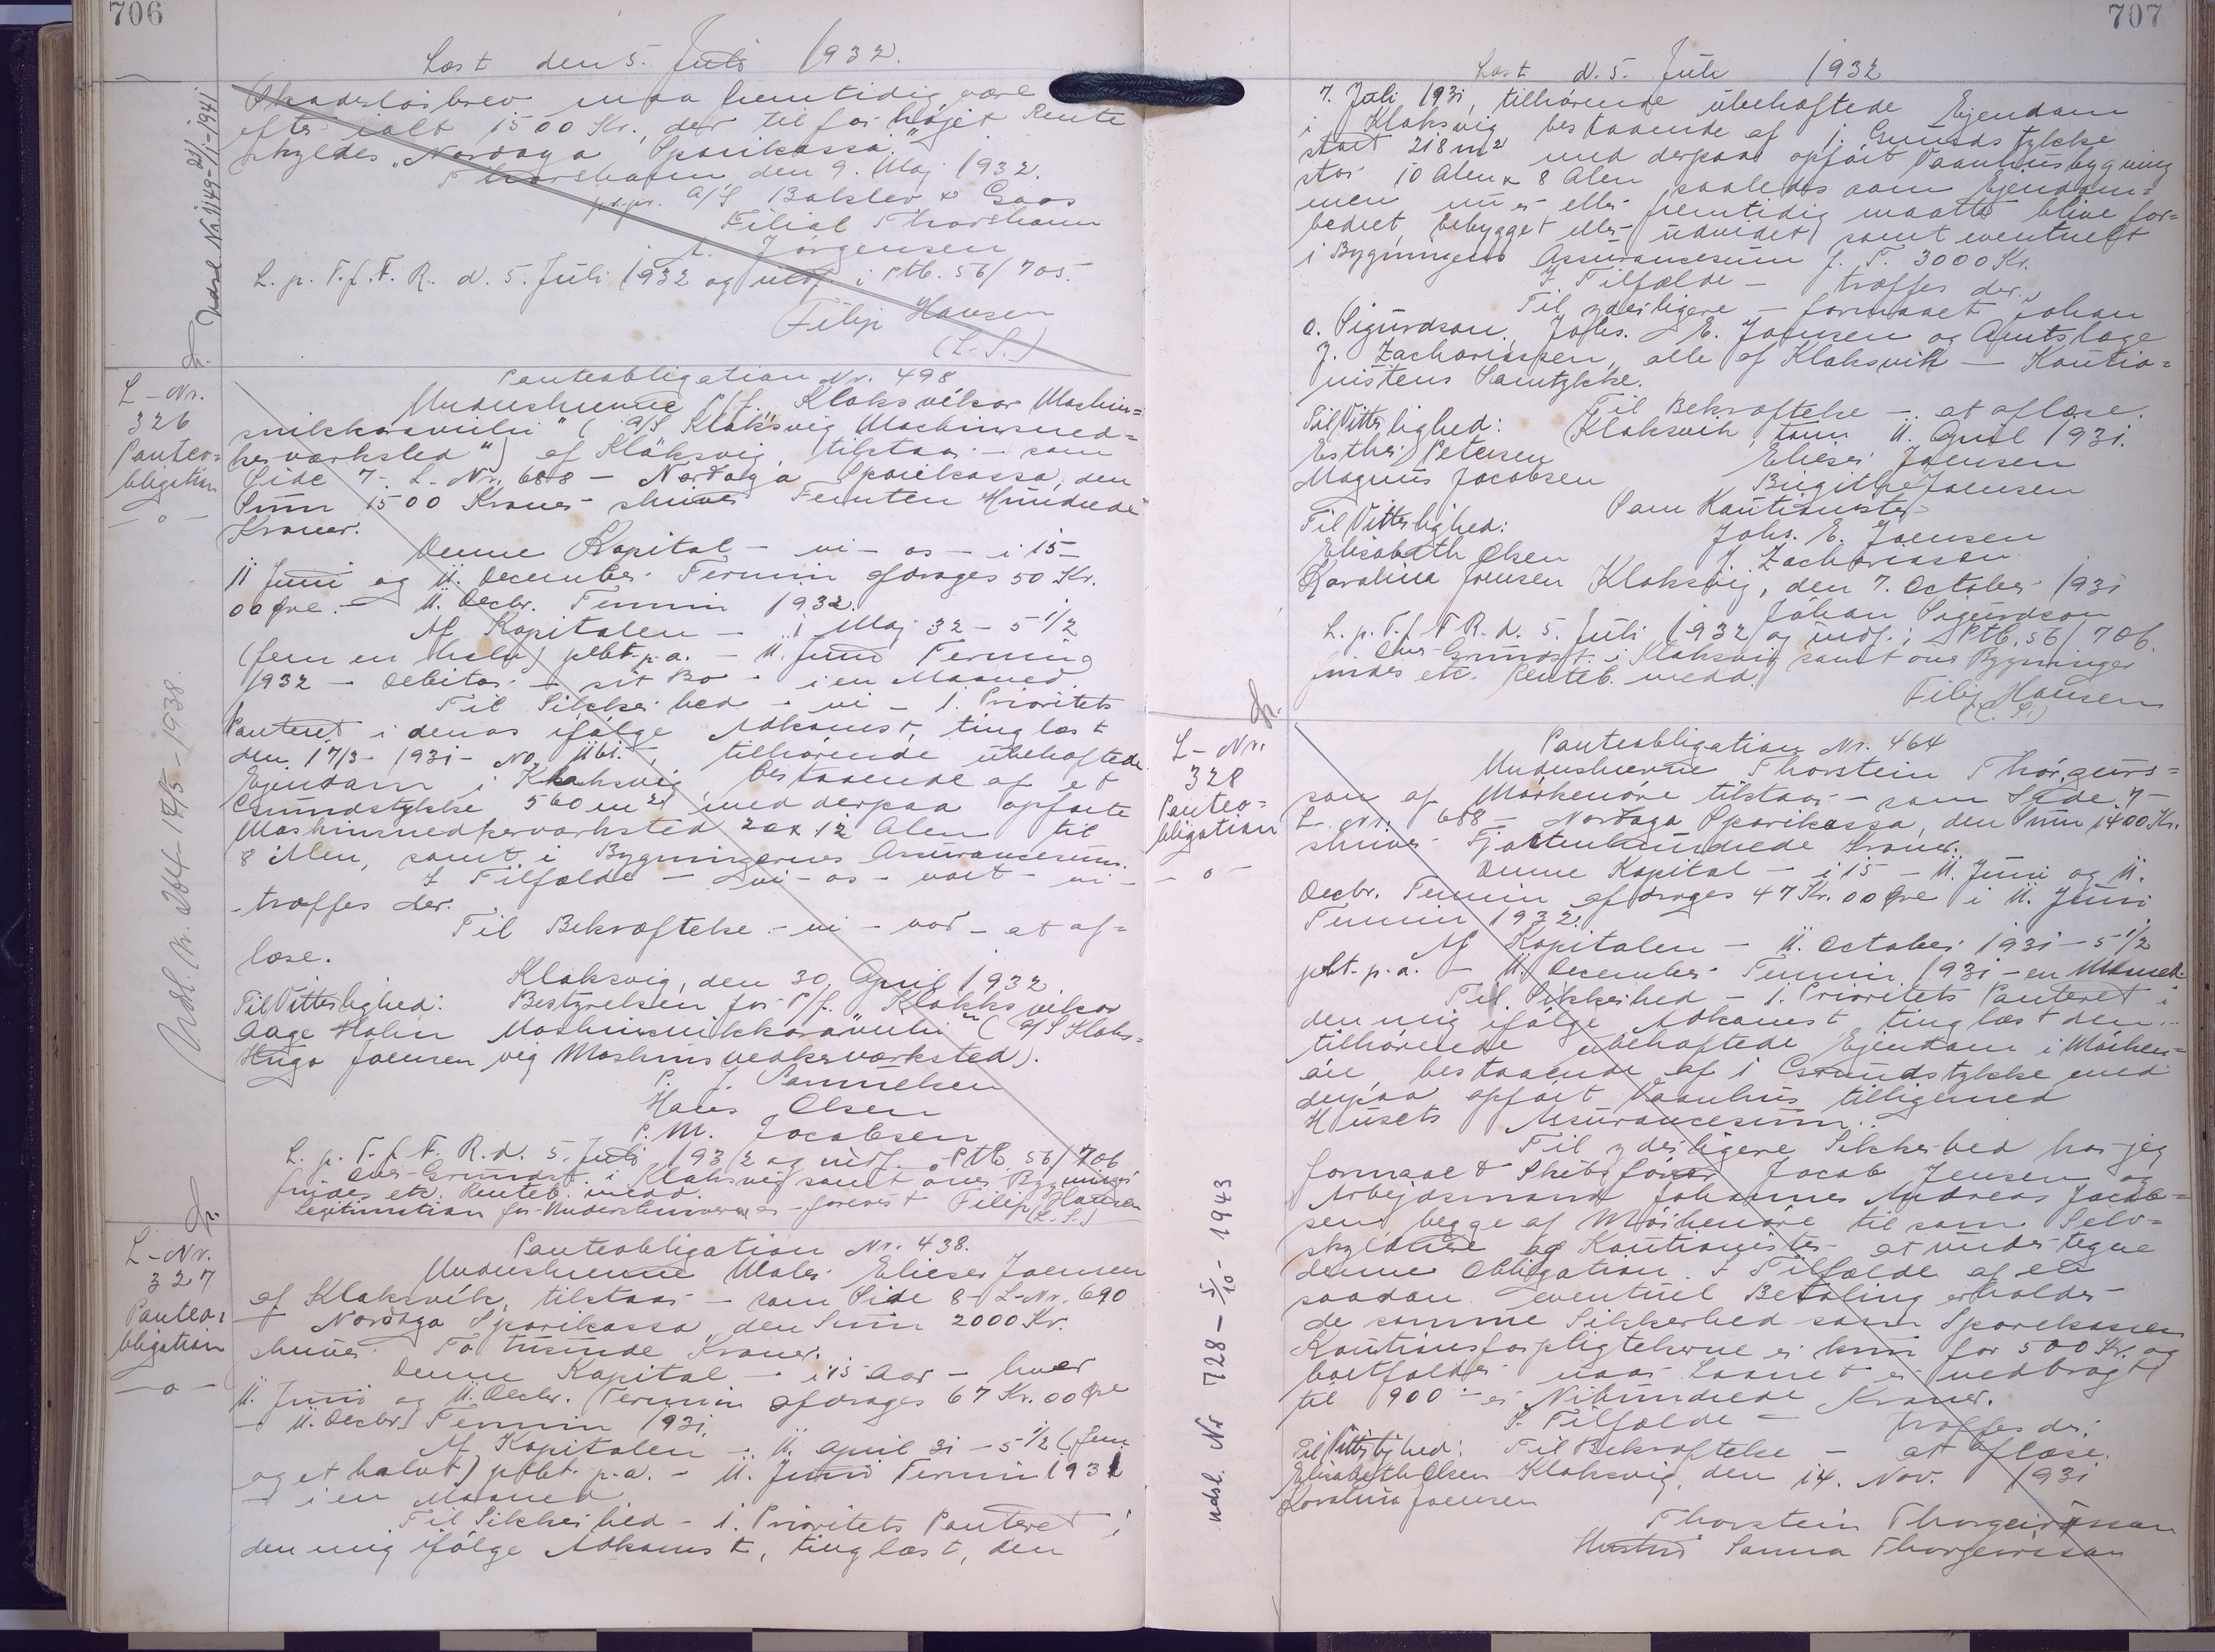 706
Læst den 5. Juli 1932.
Skadesløsbrev maa fremtidig være
efter ialt 1500 Kr., der tilforhøjet Rente
skyldes "Nordoya Sparikassa."
Thorshavn, den 9. Maj 1932.
pr.pr. A/S Balslev & Goos
Filial Thorshavn
Jørgensen
L. p. T. f. F. R. d. 5. Juli 1932 og indf. i Ptb. 56/705.
Filip Hansen
(L.S.)
Udsl. Nr. 1149-21/1-1941
L-Nr.
326
Panteo=
bligation
— o —
Udsl. Nr. 264-17/5-1938.
Panteobligation Nr. 498
Underskrevne P/f. "Klaksvikar Maskin=
snikkaravirki" (A/S Klaksvig Maskinsned=
kerværksted") af Klaksvig, tilstaar - som
Side 7- L-Nr. 688 - Nordoya Sparikassa, den
Sum 1500 Kroner skriver Femten Hundrede
Kroner.
Denne Kapital - vi - os - i 15 -
11 Juni og 11. December Termin afdrages 50 Kr.
00 Øre - 11. Decbr. Termin 1932.
Af Kapitalen - 1 Maj 32 - 5 1/2
(fem en halv) pCt. p.a. - 11. Juni Termin
1932 - Debitor - sit Bo - i en Maaned
Til Sikkerhed - vi - 1. Prioritets
Panteret i denos ifølge Adkomst, tinglæst
den 17/3-1931- No. 1161, tilhørende ubehæftede
Ejendom i Klaksvig bestaaende af et
Grundstykke 560 m2 med derpaa opførte
Maskinsnedkerværksted 20 x 12 Alen til
8 Alen, samt i Bygningernes Assurancesum.
I Tilfælde - vi - os - vort - vi -
træffes der.
Til Bekræftelse - vi - vor - at af=
læse.
Klaksvig, den 30. April 1932
Til Vitterlighed: Bestyrelsen for P/f. Klakksvikar
Aage Holm Maskinsnikkaravirki" (A/S Klaks=
Hugo Joensen vig Maskinsnedkerværksted).
P. J. Samuelsen
Hans Olsen
P. M. Jacobsen
L. p. T. f. F. R. d. 5. Juli 1932 og indf. i Ptb. 56/706
Over Grundst. i Klaksvig samt over Bygninger
findes etc. Renteb. medd.
Legitimation for Underskriverne er forevist Filip Hansen
(L.S.)
L-Nr.
327
Panteo=
bligation
— o —
Panteobligation Nr. 438.
Underskrevne Maler Elieser Joensen
af Klaksvik, tilstaar - som Side 8- L-Nr. 690
- Nordoya Sparikassa, den Sum 2000 Kr.
skriver To tusinde Kroner.
Denne Kapital - i 15 Aar - hver
11. Juni og 11. Decbr. Termin afdrages 67 Kr. 00 Øre
- 11. Decbr. Termin 1931.
Af Kapitalen - 11. April 31 - 5 1/2 (fem
og et halvt) pCt. p.a. - 11. Juni Termin 1931
- i en Maaned
Til Sikkerhed - 1. Prioritets Panteret i
den mig ifølge Adkomst, tinglæst, den
707
Læst d. 5. Juli 1932
7. Juli 1931, tilhørende ubehæftede Ejendom
i Klaksvig bestaaende af 1. Grundstykke
stort 218 m2 med derpaa opført Vaanhusbygning
stor 10 Alen x 8 Alen saaledes som Ejendom=
men nu er eller fremtidig maatte blive for=
bedret, bebygget eller udvidet samt eventuelt
i Bygningens Assurancesum f. T. 3000 Kr.
I Tilfælde - træffes der.
Til yderligere - formaaet Johan
a. Sigurdson, Johs. E. Joensen og Amtslæge
J. Zachariassen, alle af Klaksvik - Kautio=
nistens Samtykke.
Til Bekræftelse - at aflæse.
Til Vitterlighed: Klaksvik, den 11. April 1931.
Esther Petersen Elieser Joensen
Magnus Jacobsen Birgithe Joensen
Til Vitterlighed: Som Kautionister
Elisabeth Olsen Johs. E. Joensen
J. Zachariasen
Karolina Joensen Klaksvig, den 7. October 1931
Johan Sigurdson
L. p. T. f. F. R. d. 5. Juli 1932 og indf. i Ptb. 56/706.
Over Grundst. i Klaksvig samt over Bygninger
findes etc. Renteb. medd.
Filip Hansen
(L.S.)
L-Nr.
328
Panteo=
bligation
— o —
Udsl. Nr 728 - 5/10 - 1943
Panteobligation Nr. 464
Underskrevne Thorstein Thorgeirs=
son af Morkenøre tilstaar - som Side 7-
L-Nr. 688 - Nordoya Sparikassa, den Sum 1400 Kr.
skriver Fjortenhundrede Kroner.
Denne Kapital - i 15 - 11. Juni og 11.
Decbr. Termin afdrages 47 Kr. 00 Øre i 11. Juni
Termin 1932.
Af Kapitalen - 11. October 1931 - 5 1/2
pCt. p.a. - 11. December Termin 1931 - en Maaned
Til Sikkerhed - 1. Prioritets Panteret i
den mig ifølge Adkomst tinglæst den -
tilhørende ubehæftede Ejendom i Morken=
øre, bestaaende af 1 Grundstykke med
derpaa opført Vaanhus tilligemed
Husets Assurancesum.
Til yderligere Sikkerhed har jeg
formaaet Skibsfører Jacob Jensen og
Arbejdsmand Johannes Andreas Jacob=
sen, begge af Morkenøre til som Selv=
skyldnere og Kautionister at undertegne
denne Obligation. I Tilfælde af en
saadan eventuel Betaling erholder
de samme Sikkerhed som Sparekassen
Kautionsforpligtelserne er kun for 500 Kr. og
bortfalder naar Laanet er nedbragt
til 900 - er Nihundrede Kroner.
I Tilfælde - træffes der.
Til Vitterlighed: Til Bekræftelse - at aflæse.
Elisabeth Olsen Klaksvig, den 14. Nov. 1931
Karolina Joensen
Thorstein Thorgeirsson
Hustru Sanna Thorgeirsson